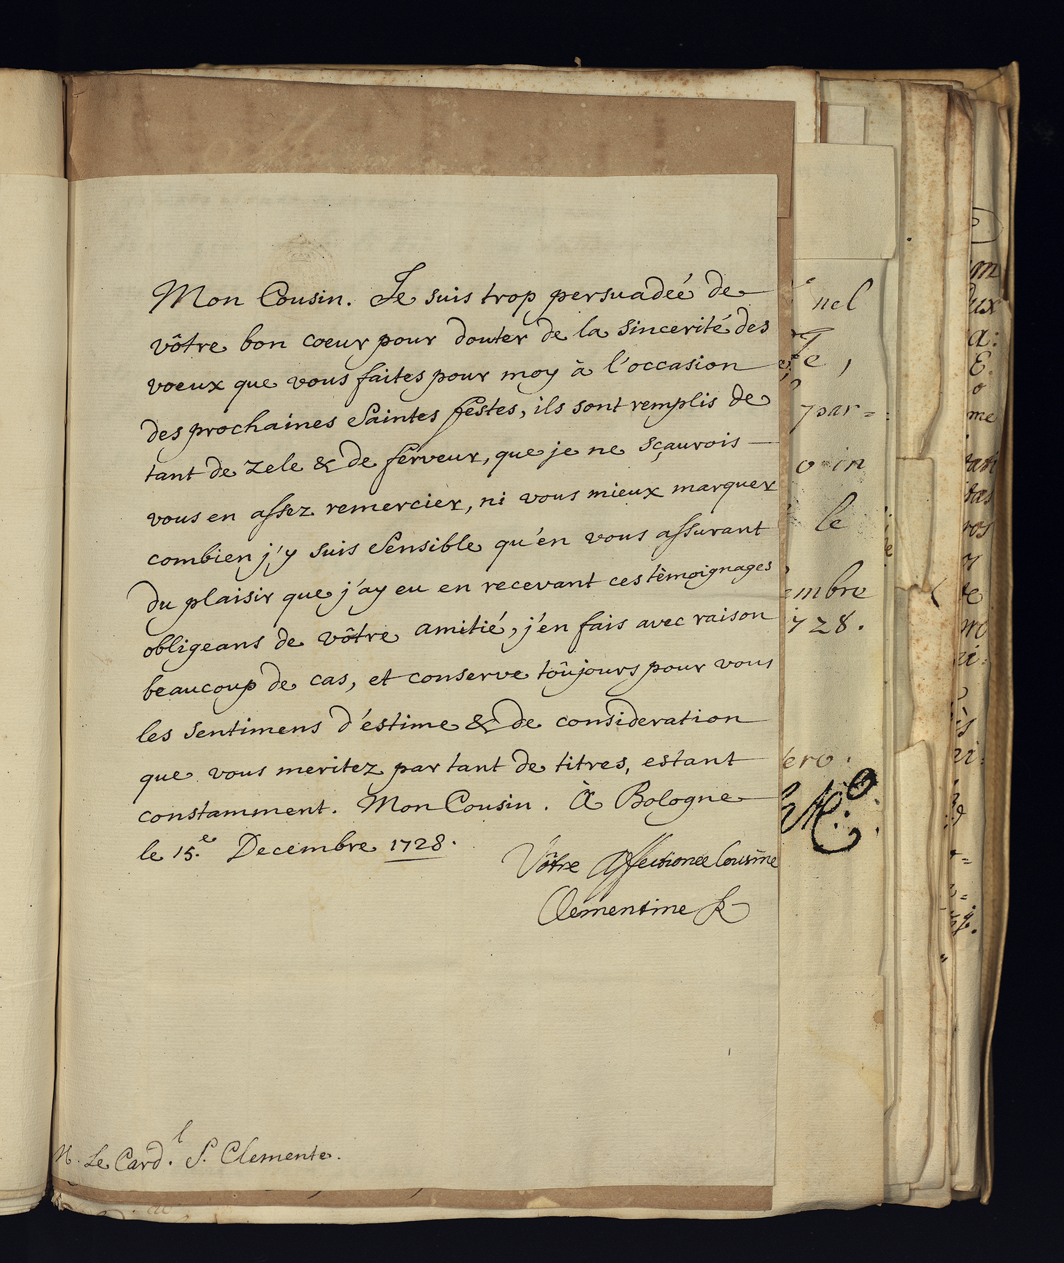 Mon Cousin. Je suis trop persuadéé de
vôtre bon coeur pour douter de la sincerité des
voeux que vous faites pour moy à l'occasion
des prochaines Saintes festes, ils sont remplis de
tant de zele & de ferveur, que je ne sçaurois
vous en assez remercier, ni vous mieux marquer
combien j'y suis Sensible qu'én vous assurant
du plaisir que j'ay eu en recevant ces tèmoignages
obligeans de vôtre amitié, j'en fais avec raison
beaucoup de cas, et conserve toûjours pour vous
les sentimens d'éstime & de consideration
que vous meritez par tant de titres, estant
constamment. Mon Cousin. A Bologne
le 15.e Decembre 1728.
Vôtre affectionée Cousine
Clementine R
M. Le Card.l S. Clemente.
nel
par=
in
le
embre
1728.